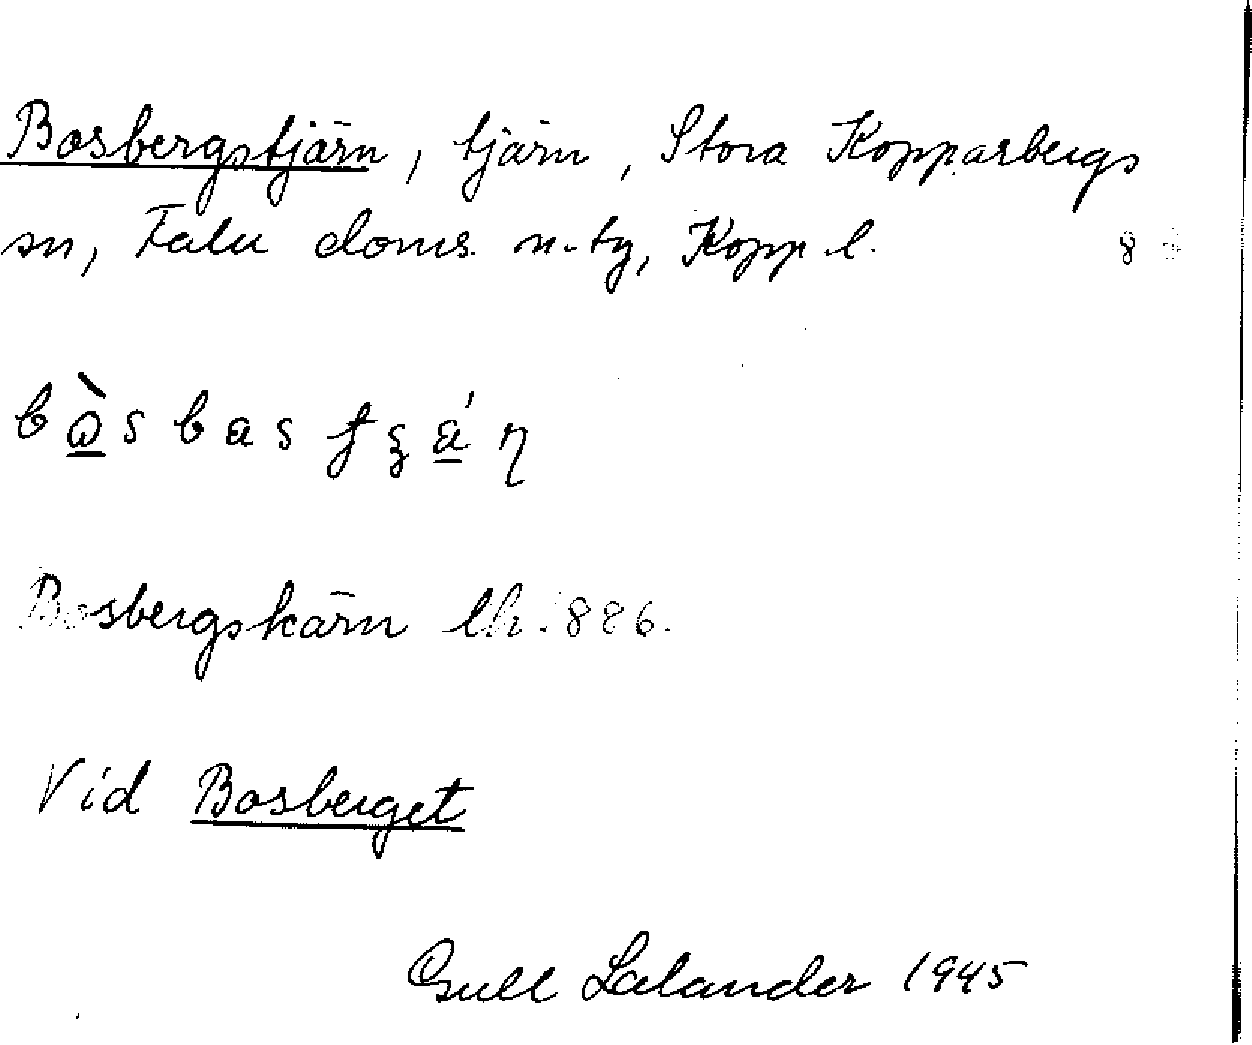 Bosbergstjärn, tjärn, Stora Kopparbergs
sn, Falu doms. n. tg, Kopp l. 8
Bosbergskärn lk. 1886.
Vid Bosberget
Gull Lalander 1945